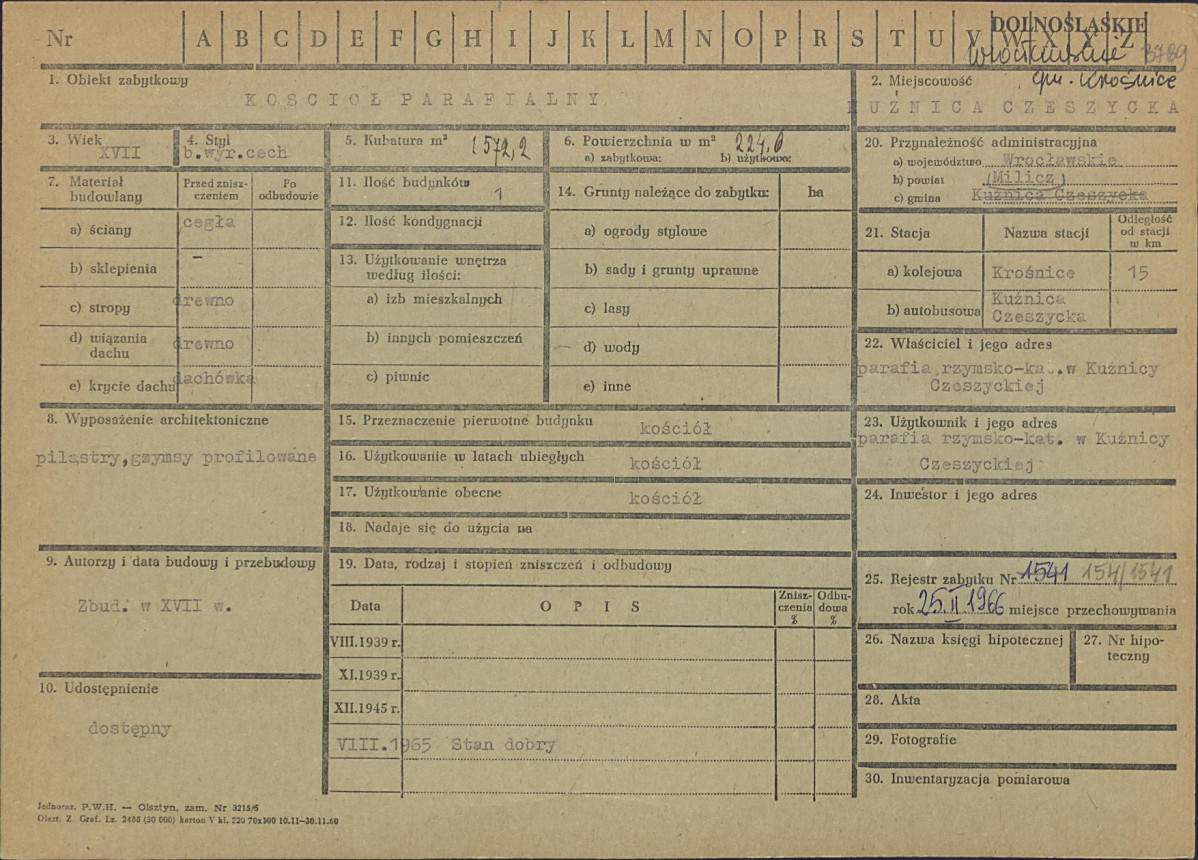 Nr A B C D E F G H I J K L M N O P R S T U V W X Y Z
DOLNOŚLĄSKIE
3789
1. Obiekt zabytkowy
KOŚCIÓŁ PARAFIALNY
2. Miejscowość gm. Krośnice
KUŹNICA CZESZYCKA
3. Wiek
XVII
4. Styl
b.wyr.cech
5. Kubatura m³ 1572,2
6. Powierzchnia w m² 224.0
a) zabytkowa: b) użytkowa:
7. Materiał budowlany
Przed zniszczeniem
Po odbudowie
a) ściany cegła
b) sklepienia –
c) stropy drewno
d) wiązania dachu drewno
e) krycie dachu dachówka
8. Wyposażenie architektoniczne
pilastry,gzymsy profilowane
9. Autorzy i data budowy i przebudowy
Zbud. w XVII w.
10. Udostępnienie
dostępny
11. Ilość budynków 1
12. Ilość kondygnacji
13. Użytkowanie wnętrza
według ilości:
a) izb mieszkalnych
b) innych pomieszczeń
c) piwnic
14. Grunty należące do zabytku: ha
a) ogrody stylowe
b) sady i grunty uprawne
c) lasy
d) wody
e) inne
15. Przeznaczenie pierwotne budynku kościół
16. Użytkowanie w latach ubiegłych kościół
17. Użytkowanie obecne kościół
18. Nadaje się do użycia na
19. Data, rodzaj i stopień zniszczeń i odbudowy
Data OPIS Zniszczenia % Odbudowa %
VIII.1939 r.
XI.1939 r.
XII.1945 r.
VIII.1965 Stan dobry
20. Przynależność administracyjna
a) województwo Wrocławskie
b) powiat (Milicz)
c) gmina Kuźnica Czeszycka
21. Stacja Nazwa stacji Odległość od stacji w km
a) kolejowa Krośnice 15
b) autobusowa Kuźnica
Czeszycka
22. Właściciel i jego adres
parafia rzymsko-ka..w Kuźnicy
Czeszyckiej
23. Użytkownik i jego adres
parafia rzymsko-kat. w Kuźnicy
Czeszyckiej
24. Inwestor i jego adres
25. Rejestr zabytku Nr 1541 154/1541
rok 25.II.1966 miejsce przechowywania
26. Nazwa księgi hipotecznej
27. Nr hipoteczny
28. Akta
29. Fotografie
30. Inwentaryzacja pomiarowa
Jednoraz. P.W.H. — Olsztyn, zam. Nr 3215/6
Olszt. Z Graf. Lz. 2485 (30 000) karton V kl. 220 70x100 10.11—30.11.60